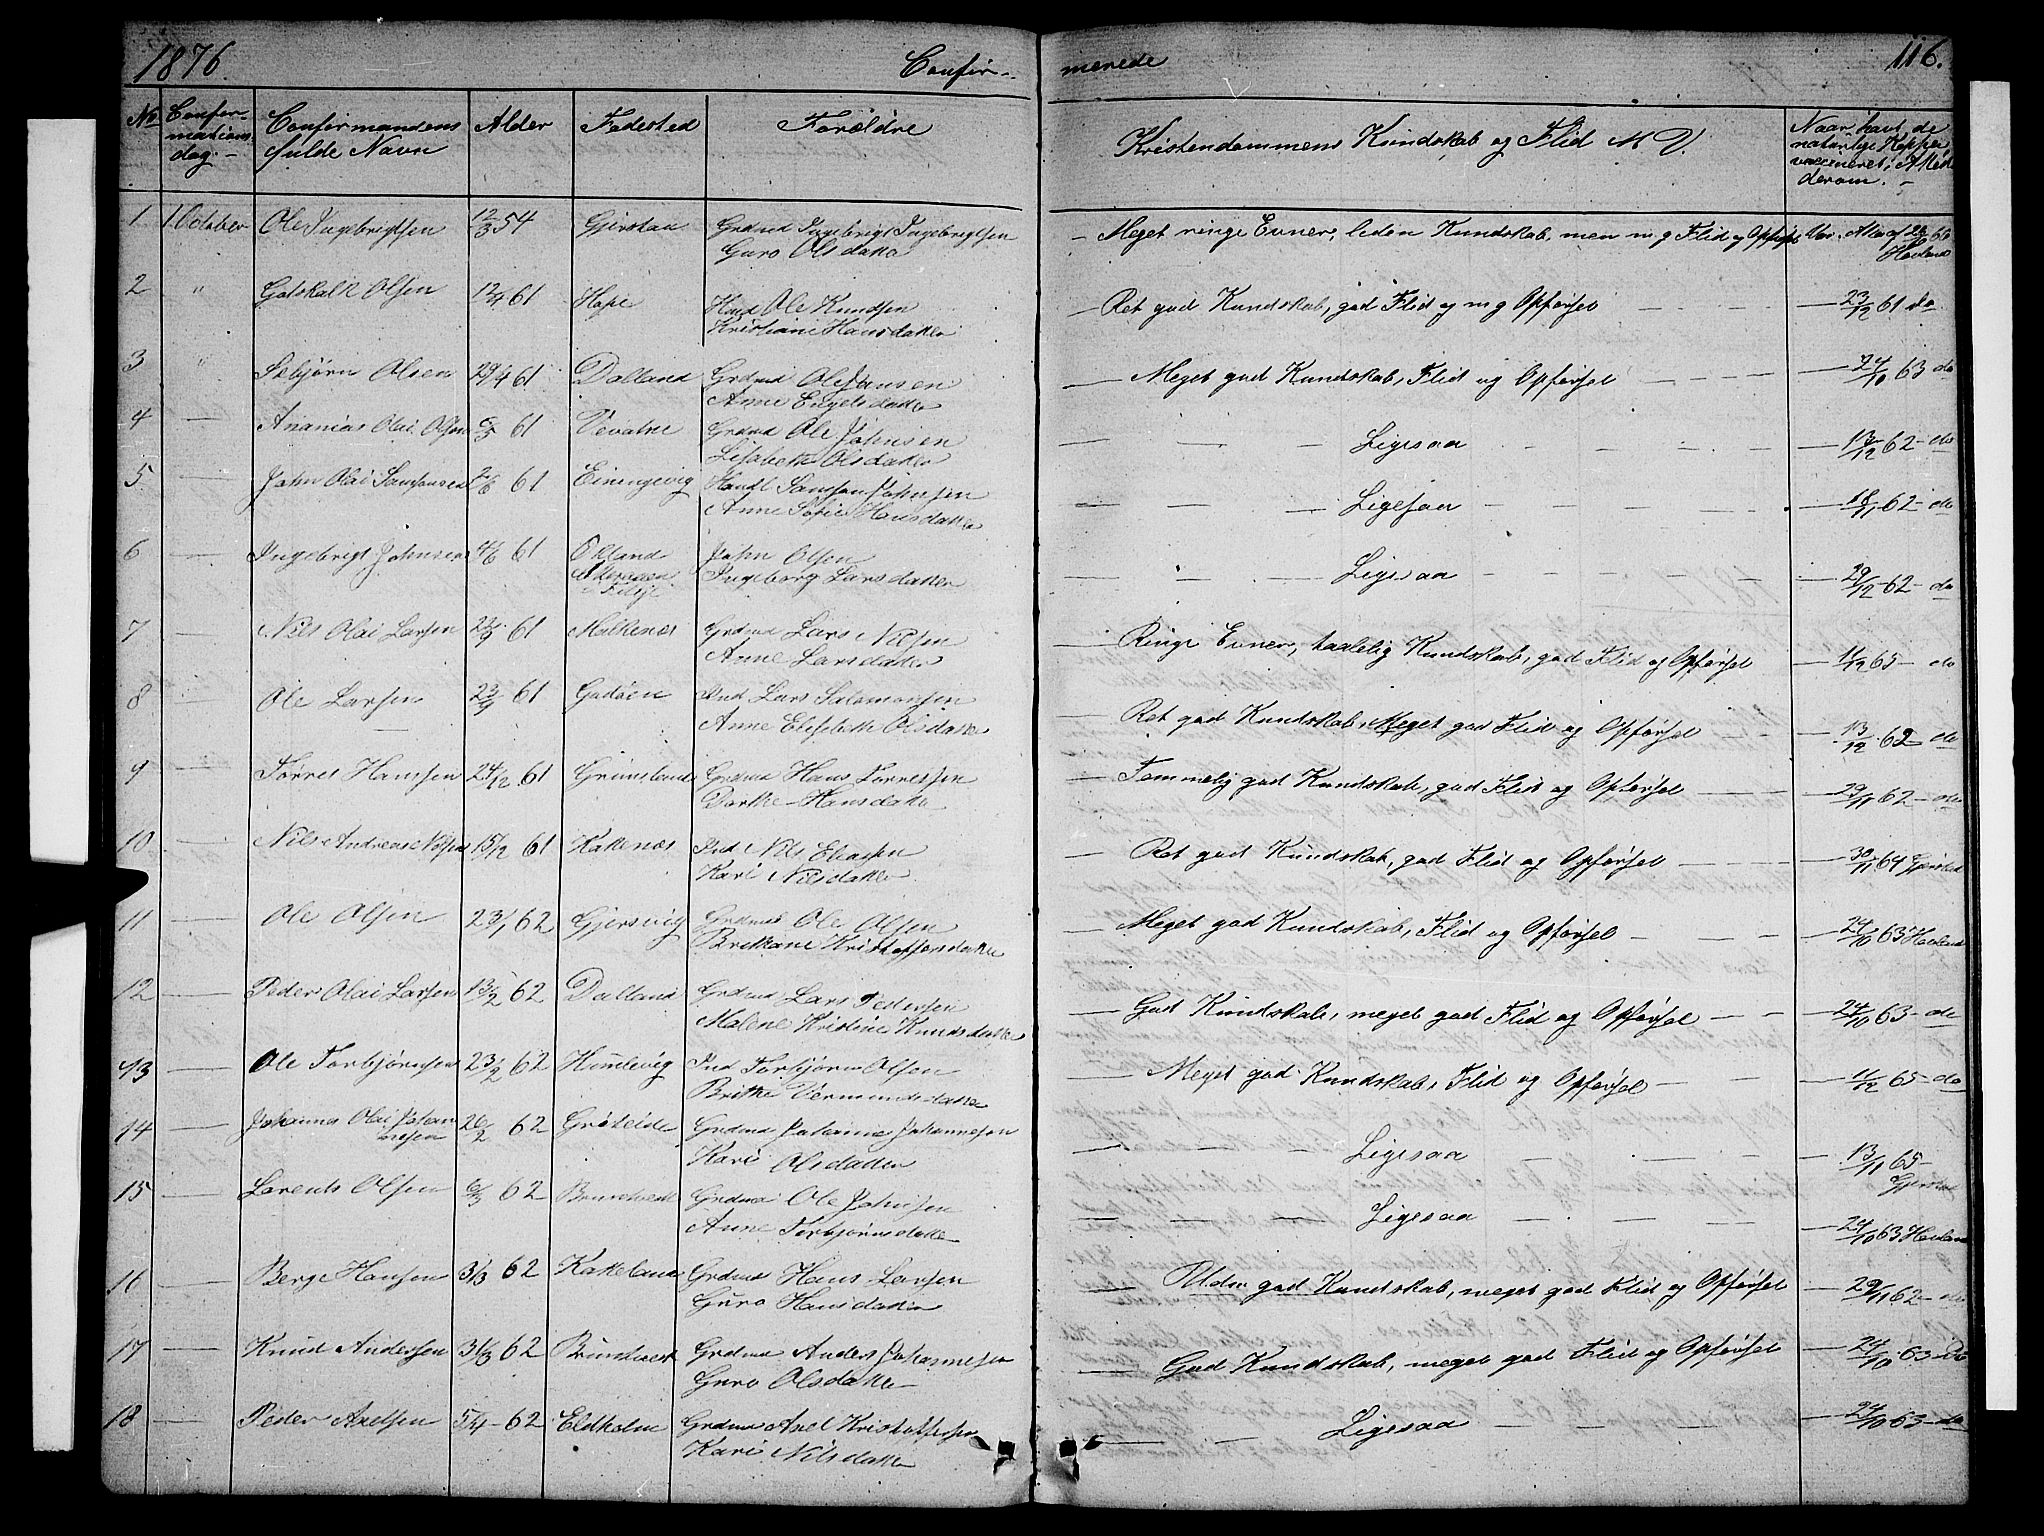 1876. Confir-
merede 116.
No Confir-
mations
dag.- Confirmandens
fulde Navn Alder Fødested Forældre Kristendommens Kundskab og Flid M V. Naar havt de
naturlige Kopper
vaccineret,
derom. -
1 1 October Ole Ingebrigtsen 12/3 54 Grdmd Ingebrigt Ingebrigtsen
Guro Olsdatter
- Meget ringe Evner, liden Kundskab, men m g Flid og Opførsel
Hovland
2 " Gotskalk Olsen 12/4 61 Hope Hmd Ole Knudsen
Kristiane Hansdatter
Ret god Kundskab, god Flid og m g Opførsel - - - 23/12 61 do
3 " Sebjørn Olsen 29/4 61 Dalland Grdmd Ole Hansen
Anne Engelsdatter
- Meget god Kundskab, Flid og Opførsel - - - 24/10 63 do
4 - Ananias Olai Olsen 61 Grdmd Ole Johnsen
Lisabeth Olsdatter
Ligesaa - 13/12 62 - do
5 - John Olai Samsonsen 61 Einingevig Samson Johnsen
Anne Sofie Hansdatter
Ligesaa - 18/11 62 - do
6 - Ingebrigt Johnsen 4/6 61 Økland John Olsen
Ingeborg Larsdatter
Ligesaa - 29/12 62 - do
7 - Nils Olai Larsen 61 Malkenes Grdmd Lars Nilsen
Anne Larsdatter
- Ringe Evner, taalelig Kundskab, god Flid og Opførsel - 11/12 65 - do
8 - Ole Larsen 23/9 61 Godøen Ind Lars Salamonsen
Anne Elisabeth Olsdatter
- Ret god Kundskab, Meget god Flid og Opførsel - 13/12 62 - do
9 - Tørres Hansen 24/12 61 Grimsland Grdmd Hans Tørressen
Dorthe Hansdatter
- Temmelig god Kundskab, god Flid og Opførsel - 29/11 62 - do
10 - Nils Andreas Nilsen 15/12 61 Kakenes Ind Nils Eliassen
Kari Nilsdatter
- Ret god Kundskab, god Flid og Opførsel - 30/11 64
11 - Ole Olsen 23/1 62 Gjersvig Grdmd Ole Olsen
Brithane Kristoffersdatter
- Meget god Kundskab, Flid og Opførsel - 24/10 63 Hovland
12 - Peder Olai Larsen 13/2 62 Dalland Grdmd Lars Pedersen
Malene Kristine Knudsdatter
- God Kundskab, meget god Flid og Opførsel - 24/10 63 - do
13 - Ole Torbjørnsen 23/2 62 Humlevig Ind Torbjørn Olsen
Brithe Vermundsdatter
- Meget god Kundskab, Flid og Opførsel - 11/12 65 - do
14 - Johannes Olai Johan-
nesen 26/2 62 Grdmd Johannes Johannesen
Kari Olsdatter
Ligesaa - 13/11 65 -
15 - Lorents Olsen 6/3 62 Grdmd Ole Johnsen
Anne Torbjørnsdatter
Ligesaa - 24/10 63 Hovland
16 - Berge Hansen 31/3 62 Kakeland Grdmd Hans Larsen
Guro Hansdatter
- Udm. god Kundskab, meget god Flid og Opførsel - 29/11 62 - do
17 - Knud Andersen 31/3 62 Grdmd Anders Johannesen
Guro Olsdatter
- God Kundskab, meget god Flid og Opførsel - 24/10 63 - Do
18 - Peder Axelsen 5/4 - 62 Eldholm Grdmd Axel Kristoffersen
Kari Nilsdatter
Ligesaa - 24/10 63 - do